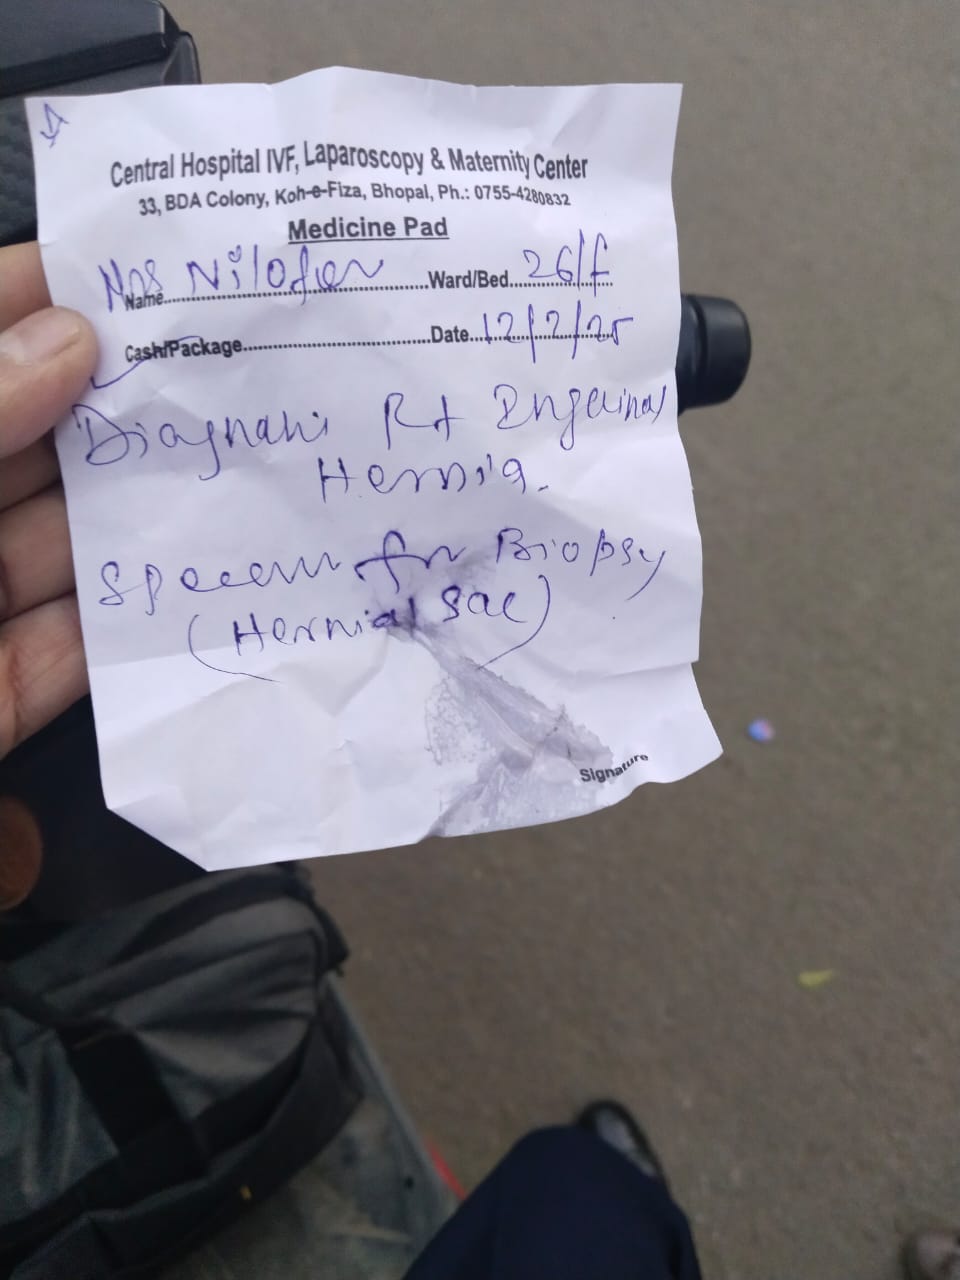 Central Hospital IVF, Laparoscopy & Maternity Center
33, BDA Colony, Koh-e-Fiza, Bhopal, Ph.: 0755-4280832
Medicine Pad
Name Mrs Nilofer Ward/Bed 26/f
Cash/Package Date 12/2/25
Diagnosis Rt Inguinal
Hernia.
Specem for Biopsy
(Hernial sac)
Signature